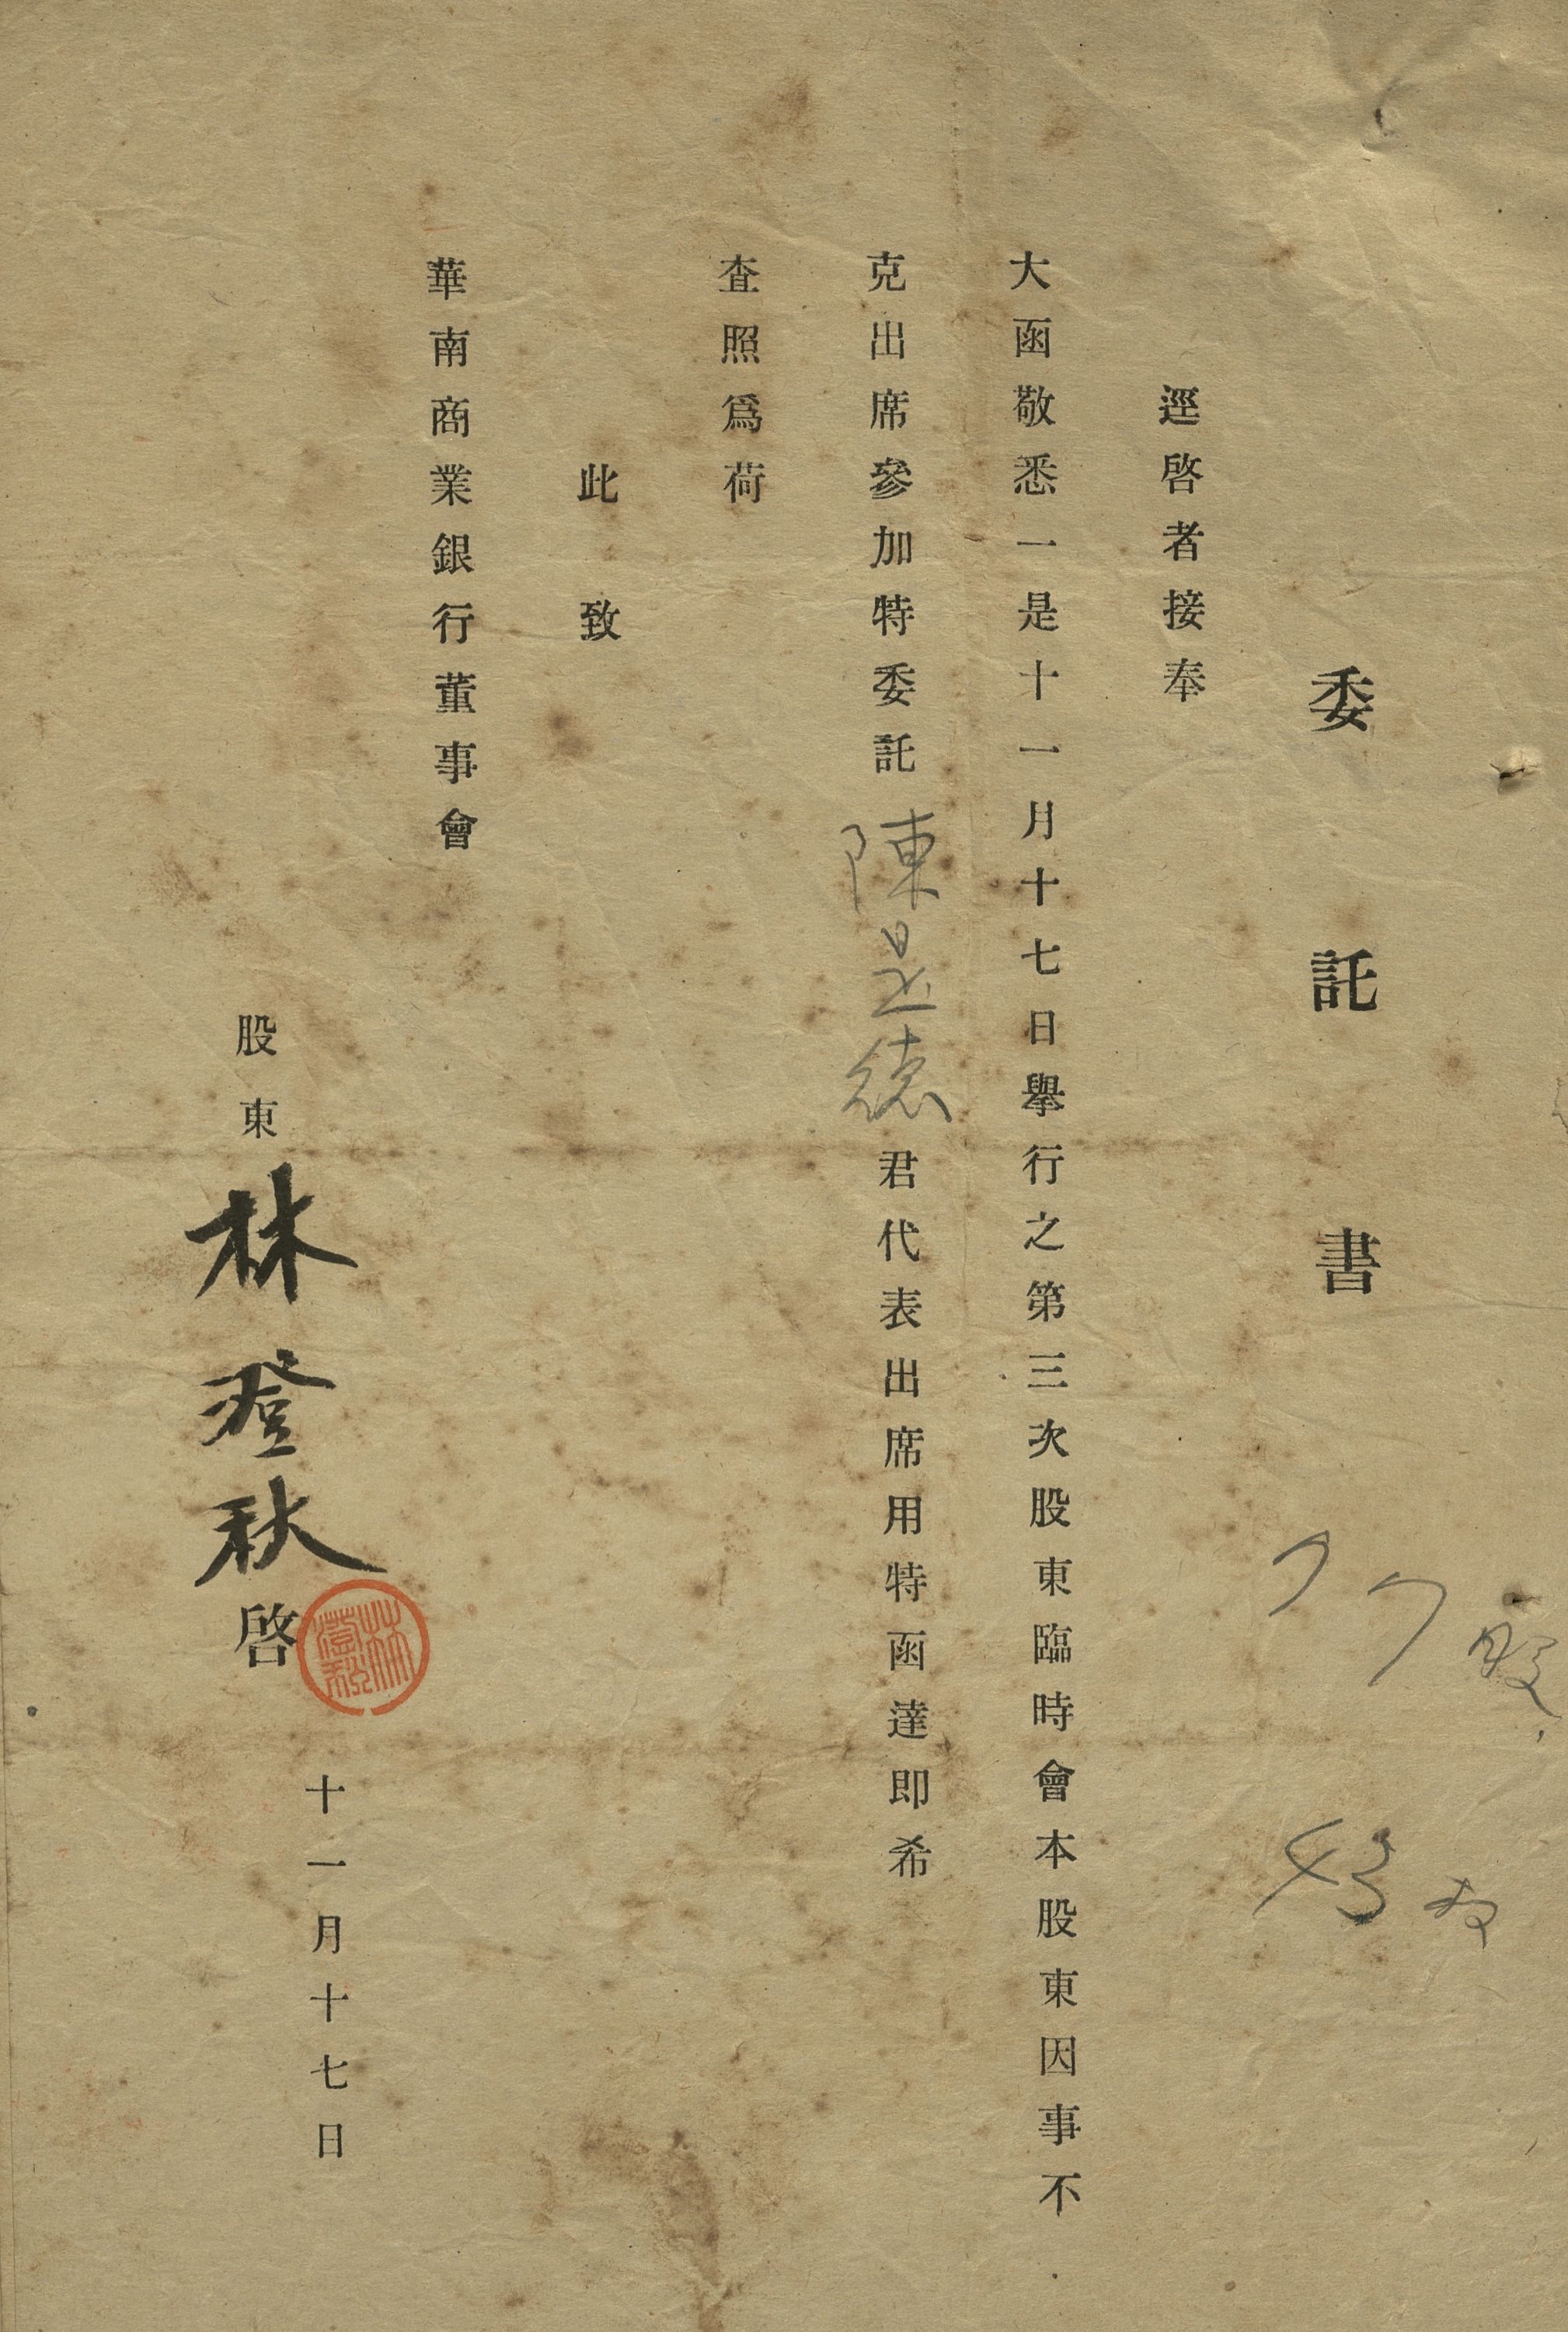 委託書
逕啓者接奉
大函敬悉一是十一月十七日舉行之第三次股東臨時會本股東因事不
克出席參加特委託陳昰德君代表出席用特函達即希
查照爲荷
此致
華南商業銀行董事會
股東林澄秋啓
林澄秋
十一月十七日